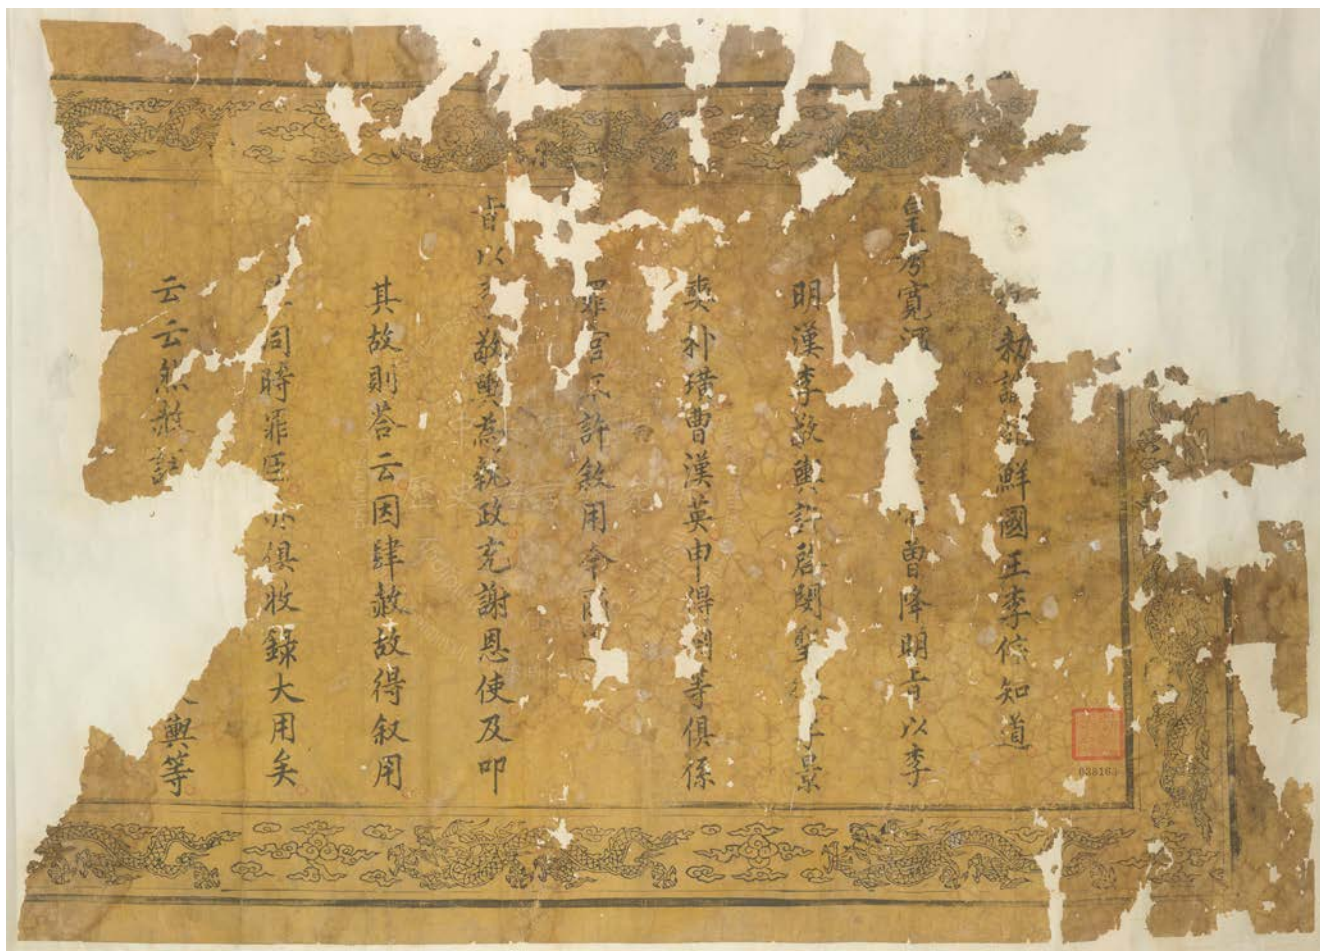 勅諭朝鮮國王李倧知道
皇考寬 曹降明旨以李
明漢李敬輿許啟閔聖 李景
奭朴潢曹漢英申得淵等俱係
罪官不許敘用今爾
旨以李敬輿為執政充謝恩使及叩
其故則答云因肆赦故得叙用
同時罪臣 亦俱收錄大用矣
云云然 輿等
038163